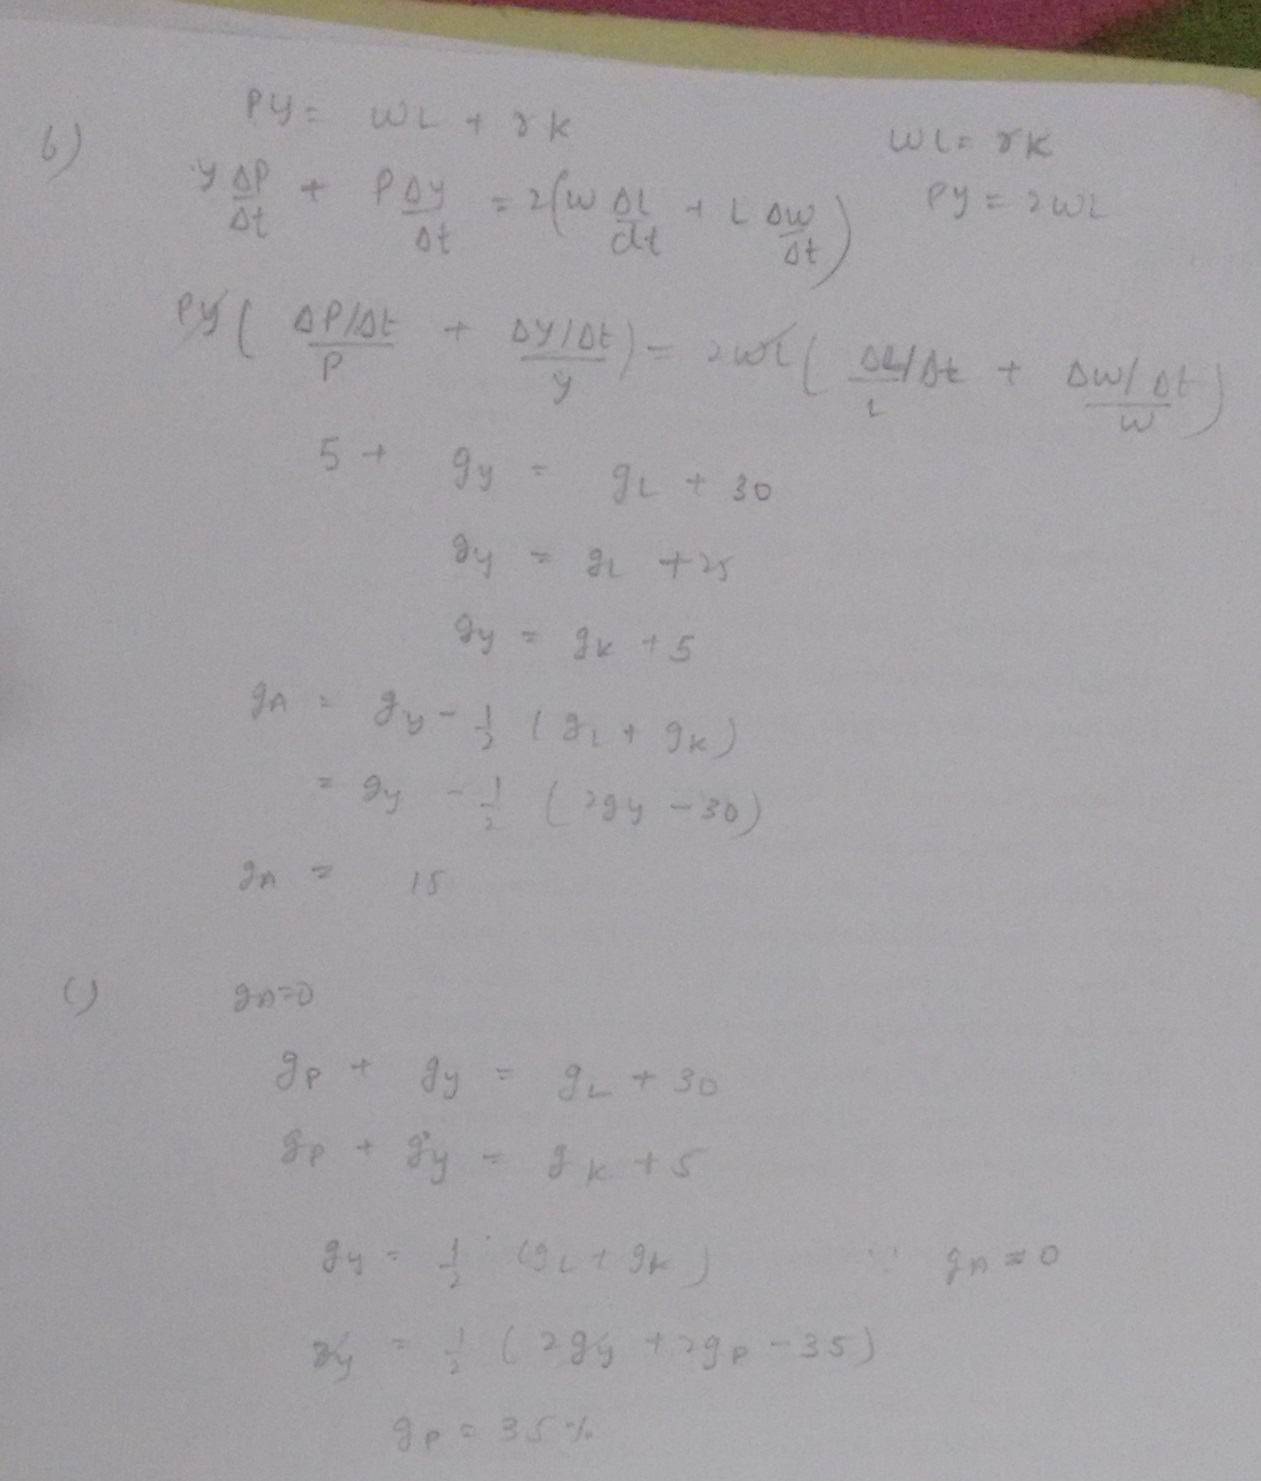 b) PY = WL + rK    WL = rK
Y ΔP/Δt + P ΔY/Δt = 2(W ΔL/dt + L ΔW/Δt)    PY = 2WL
PY( (ΔP/Δt)/P + (ΔY/Δt)/Y ) = 2WL( (ΔL/Δt)/L + (ΔW/Δt)/W )
5 + gy = gL + 30
gy = gL + 25
gy = gK + 5
gA = gy - 1/2 (gL + gK)
= gy - 1/2 (2gy - 30)
gA = 15
c) gA=0
gP + gy = gL + 30
gP + gy = gK + 5
gy = 1/2 (gL + gK)    ∵ gA = 0
gy = 1/2 (2gy + 2gP - 35)
gP = 35%